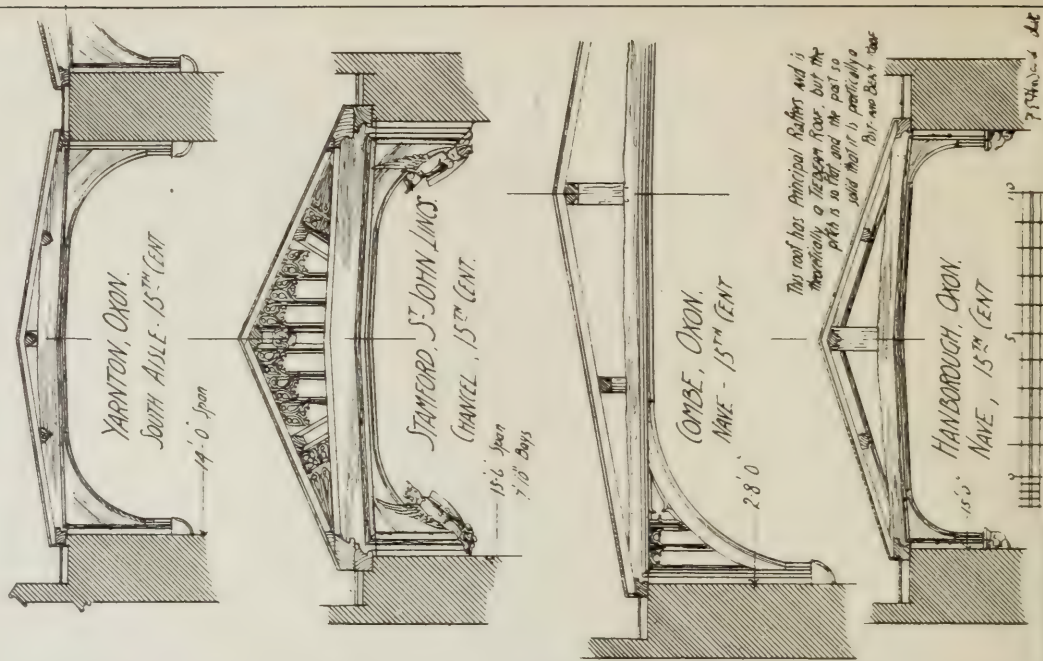 YARNTON, OXON.
SOUTH AISLE - 15TH CENT
14'-0" Span
STAMFORD. ST. JOHN LINCS.
CHANCEL, 15TH CENT.
15'-6" Span
7'10" Bays
COMBE, OXON.
NAVE - 15TH CENT
28'0"
This roof has Principal Rafters and is
theoretically a TIEBEAM ROOF, but the
pitch is so flat and the post so
solid that it is practically a
Post-AND BEAM roof
HANBOROUGH, OXON.
NAVE, 15TH CENT
15'0"
0 5 10